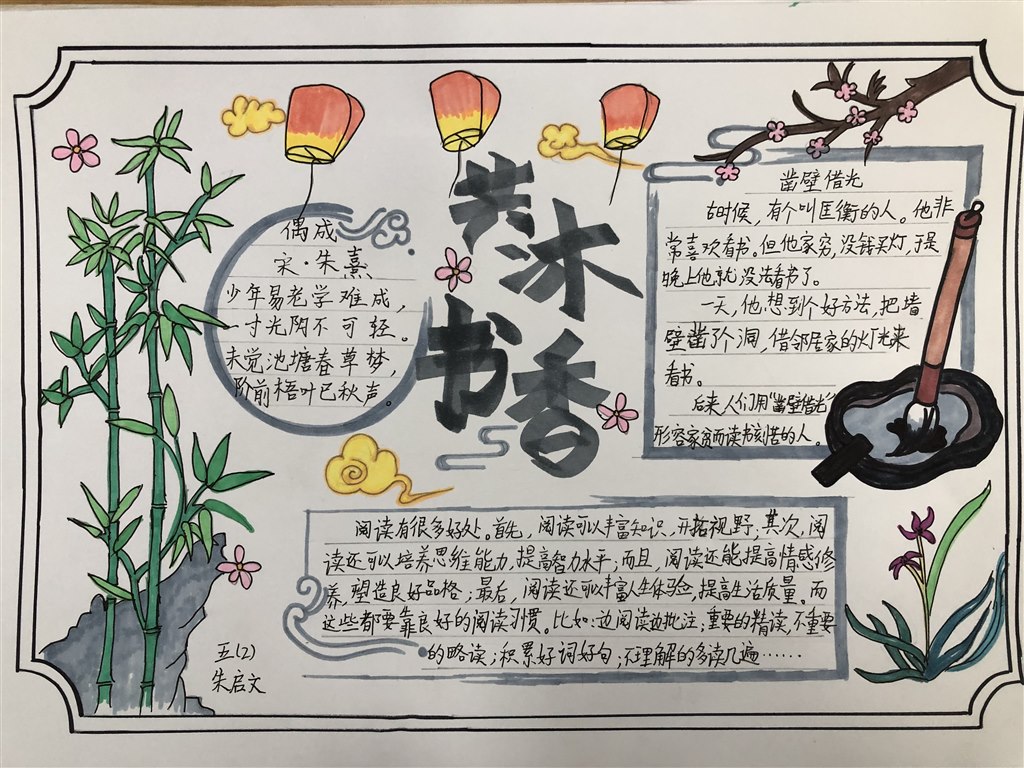 共沐
书香
偶成
宋·朱熹
少年易老学难成，
一寸光阴不可轻。
未觉池塘春草梦，
阶前梧叶已秋声。
凿壁借光
古时候，有个叫匡衡的人。他非
常喜欢看书。但他家穷，没钱买灯，于是
晚上他就没法看书了。
一天，他想到个好方法，把墙
壁凿了个洞，借邻居家的灯光来
看书。
后来人们用“凿壁借光”
形容家贫而读书刻苦的人。
阅读有很多好处。首先，阅读可以丰富知识，开拓视野；其次，阅
读还可以培养思维能力，提高智力水平；而且，阅读还能提高情感修
养，塑造良好品格；最后，阅读还可以丰富人生体验，提高生活质量。而
这些都要靠良好的阅读习惯。比如：边阅读边批注；重要的精读，不重要
的略读；积累好词好句；不理解的多读几遍……
五(2)
朱启文